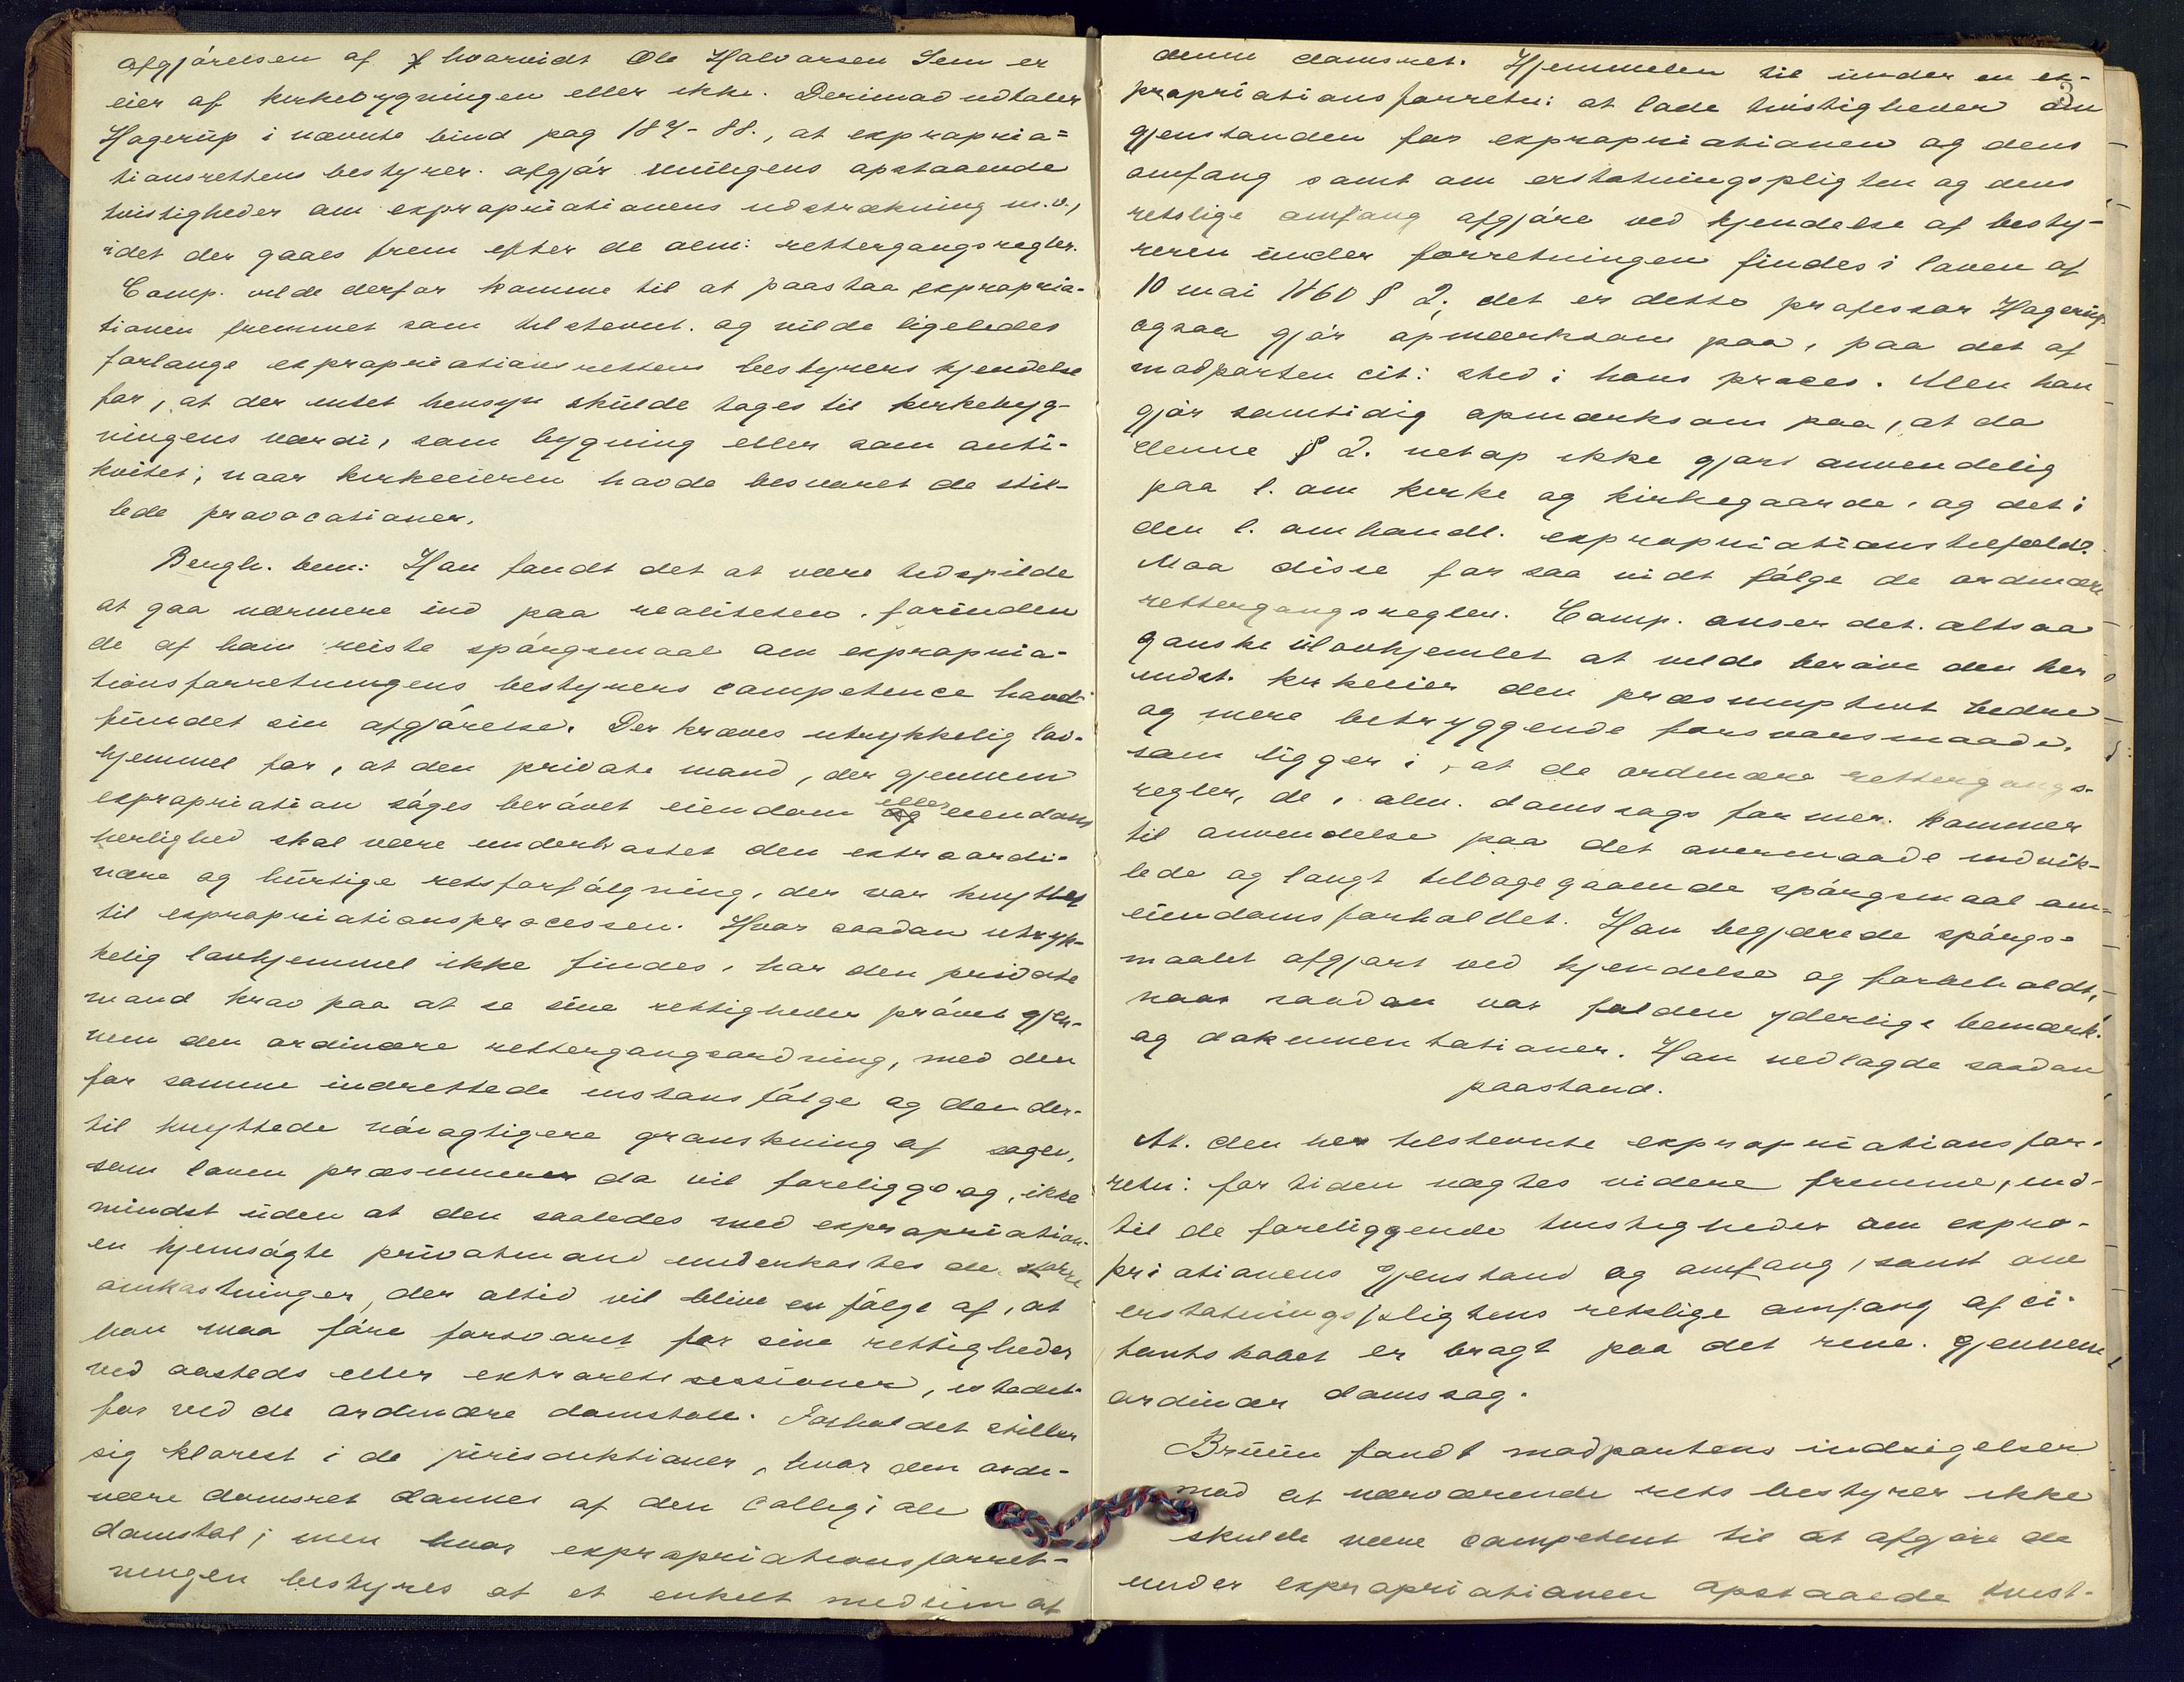 afgjørelsen af hvorvidt Ole Halvorsen Sem er
eier af kirkebygningen eller ikke. Derimod udtaler
Hagerup i nævnte bind pag 187-88., at expropria=
tionsrettens bestyrer afgjør muligens opstaaende
tvistigheder om expropriationens udstrækning m.v.,
idet der gaaes frem efter de alm: rettergangsregler.
Comp. vilde derfor komme til at paastaa expropria-
tionen fremmet som tilstevnt. og vilde ligeledes
forlange expropriationsrettens bestyrers kjendelse
for, at der intet hensyn skulde tages til kirkebyg-
ningens værdi, som bygning eller som anti-
kvitet, naar kirkeeieren havde besvaret de stil-
lede provocationer.
Bergh. bem: Han fandt det at være tidspilde
at gaa nærmere ind paa realiteten. forinden
de af ham reiste spørgsmaal om expropria-
tionsforretningens bestyrers competence havde
fundet sin afgjørelse. Der kræves utrykkelig lov-
hjemmel for, at den private mand, der gjennem
expropriation søges berøvet eiendom eller eiendoms
herlighed skal være underkastet den extraordi-
nære og hurtige retsforfølgning, der var knyttet
til expropriationsprocessen. Hvor saadan utryk-
kelig lovhjemmel ikke findes, har den private
mand krav paa at se sine rettigheder prøvet gjen-
nem den ordinære rettergangsordning, med den
for samme indrettede instansfølge og den der-
til knyttede nøiagtigere granskning af sagen,
som loven præsumerer da vil foreligge og, ikke
mindst uden at den saaledes med expropriation-
en hjemsøgte privatmand underkastes de større
omkostninger, der altid vil blive en følge af, at
han maa føre forsvaret for sine rettigheder
ved aasteds eller extraretssessioner, istedet-
for ved de ordinære domstole. Forholdet stiller
sig klarest i de jurisdiktioner, hvor den ordi-
nære domsret dannes af den collegiale
domstol; men hvor expropriationsforret-
ningen bestyres af et enkelt medlem af
3
denne domsret. Hjemmelen til under en ex-
propriationsforretn: at lade tvistigheder om
gjenstanden for expropriationen og dens
omfang samt om erstatningspligten og dens
retslige omfang afgjøre ved kjendelse af besty-
reren under forretningen findes i loven af
10 mai 1860 § 2; det er dette professor Hagerup
ogsaa gjør opmærksom paa, paa det af
modparten cit: sted i hans proces. Men han
gjør samtidig opmærksom paa, at da
denne § 2. netop ikke gjort anvendelig
paa l. om kirke og kirkegaarde, og det i
den l. omhandl. expropriationstilfæld.
Maa disse for saa vidt følge de ordinære
rettergangsregler. Comp. anser det altsaa
ganske ulovhjemlet at ville berøve den her
indst. kirkeeier den præsumptivt bedre
og mere betryggende forsvarsmaade,
som ligger i, at de ordinære rettergangs-
regler, de i alm. domssags former. kommer
til anvendelse paa det overmaade indvik-
lede og langt tilbagegaaende spørgsmaal om
eiendomsforholdet. Han begjærede spørgs-
maalet afgjort ved kjendelse og forbeholdt,
naar saadan var falden yderlige bemærk.
og dokumentationer. Han nedlagde saadan
paastand.
At. den her tilstevnte expropriationsfor-
retn: for tiden nægtes videre fremme, ind-
til de foreliggende tvistigheder om expro-
priationens gjenstand og omfang, samt om
erstatningspligtens retslige omfang af ci-
tantskabet er bragt paa det rene. gjennem
ordinær domssag.
Bruun fandt modpartens indsigelser
mod at nærværende rets bestyrer ikke
skulde være competent til at afgjøre de
under expropriationen opstaaede tvist-